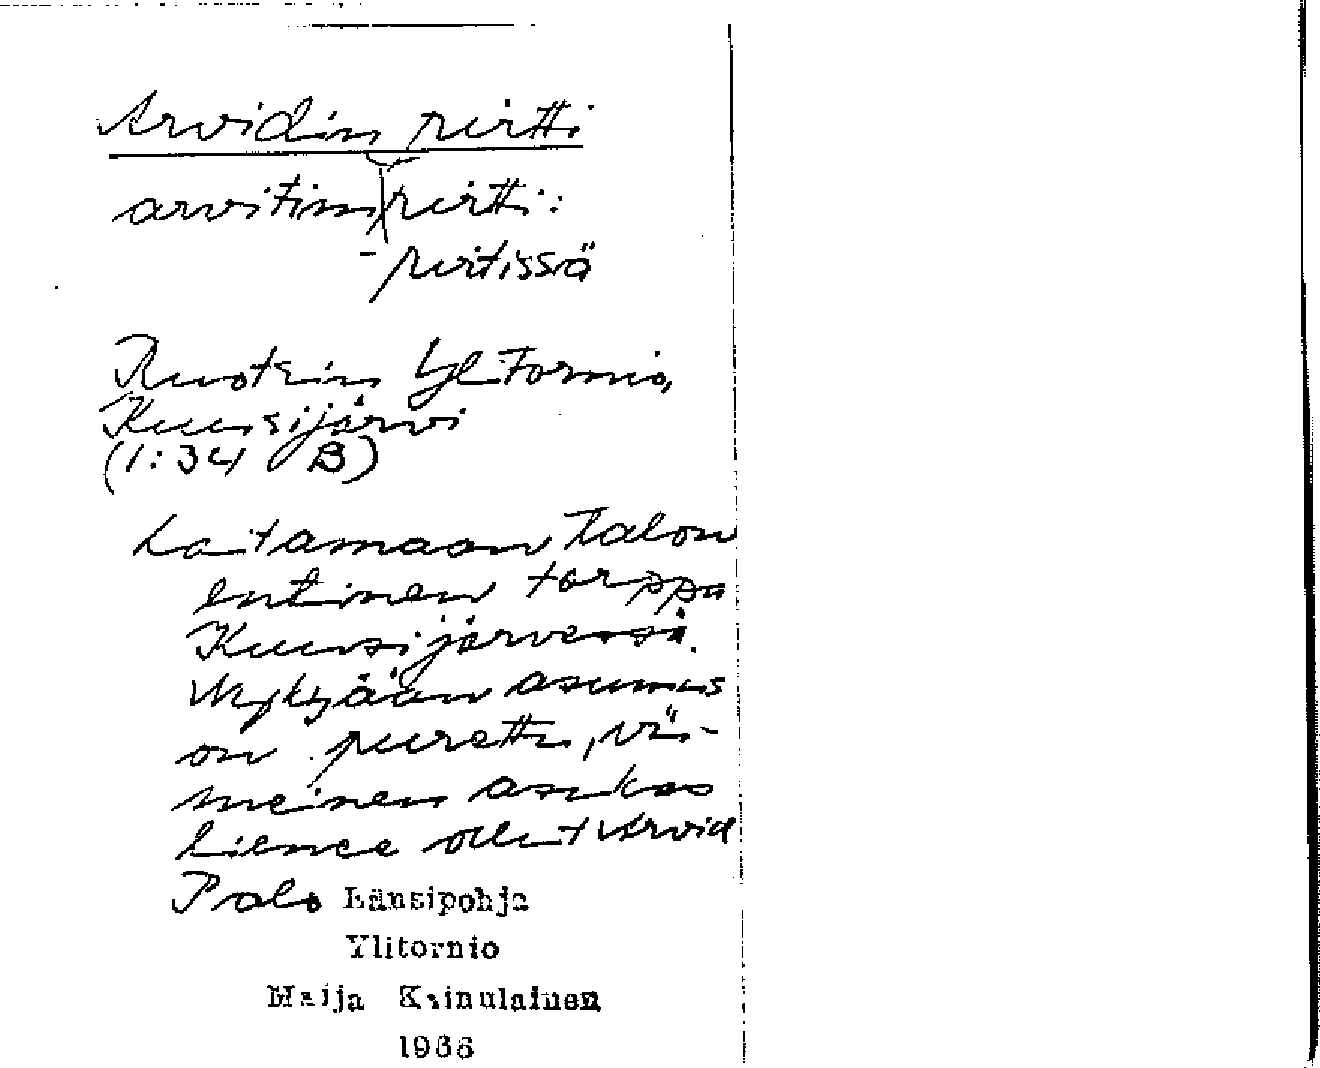 Arvidin pirtti
arvitin|pirtti:
-pirtissä
Ruotsin Ylitornio,
Kuusijärvi
(1:34 B)
Laitamaan talon
entinen torppa
Kuusijärvessä.
Nykyään asumus
on purettu, vii-
meinen asukas
lienee ollut Arvid
Palo Länsipohja
Ylitornio
Maija Kainulainen
1966